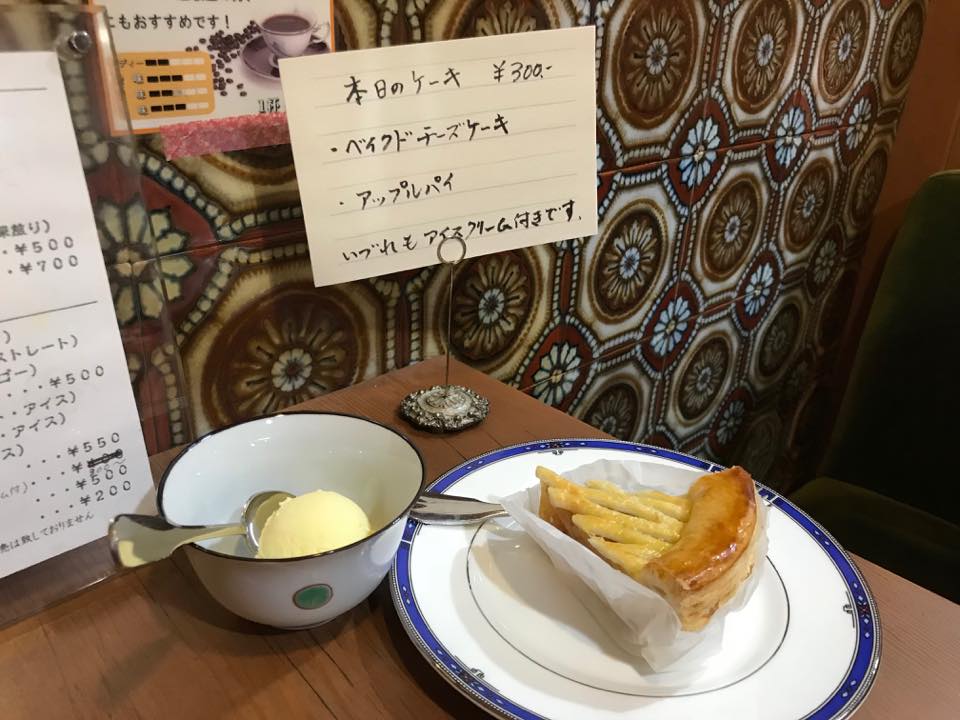 こもおすすめです！
1杯
本日のケーキ ¥300.-
・ベイクドチーズケーキ
・アップルパイ
いづれもアイスクリーム付きです。
・¥500
・¥700
ストレート)
ゴー)
・・・¥500
・アイス)
・アイス)
ス)
・・・¥550
・・・¥500
・・・¥200
売は致しておりません